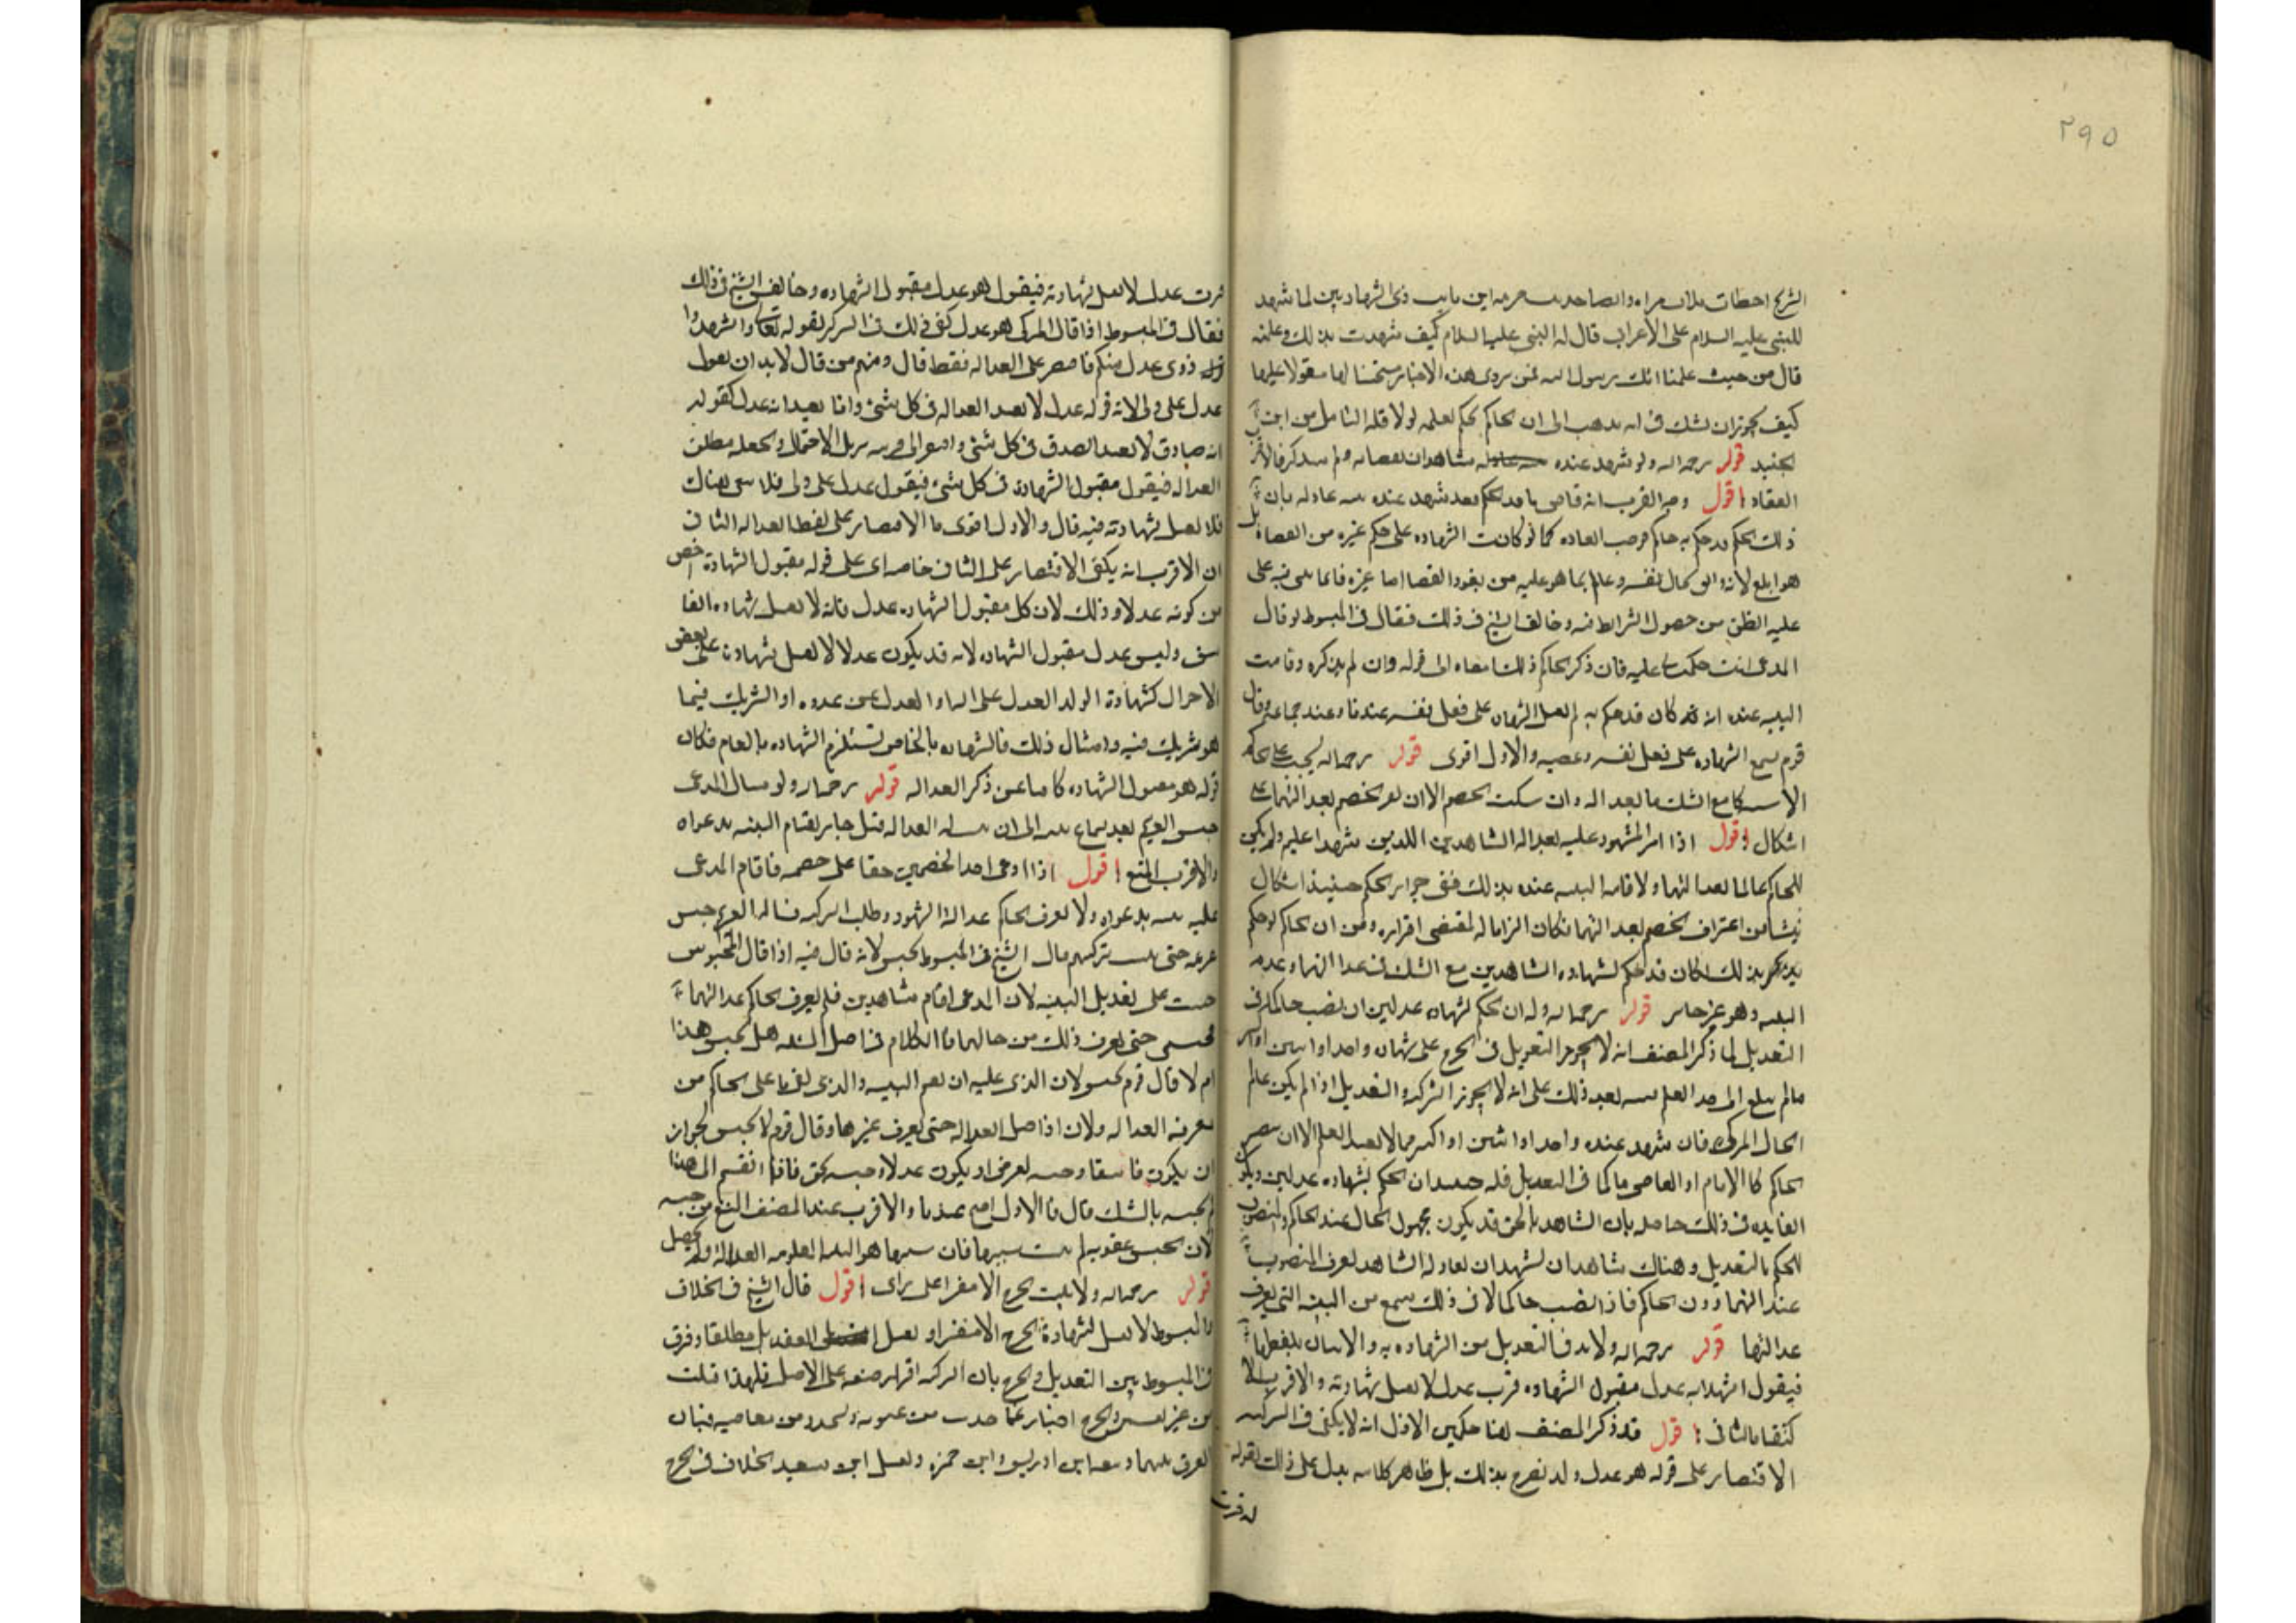 ٢٩٥
للنبي عليه السلام على الاعرابي قال له النبي عليه السلام كيف شهدت بذلك وعلمته
قال من حيث علمنا انك رسول الله
كيف يجوز ان يشك في انه يذهب الى ان الحاكم يحكم بعلمه لولا قلة التامل من ابن
الجنيد قوله رحمه الله ولو شهد عنده شاهدان
اقول وجه القرب انه
ذلك الحكم قد حكم به حاكم فوجب كما لو كانت الشهاده على حكم غيره من القضاة
عليه الظن من حصول الشرائط فيه وخالف الشيخ في ذلك فقال في المبسوط لو قال
المدعي انت حكمت عليه فان ذكر الحاكم ذلك امضاه الى قوله وان لم يذكره وقامت
البينه عنده انه كان قد حكم به لم يقبل الشهاده على فعل نفسه عندنا وعند جماعة وقال
قوم يسمع الشهاده على فعل نفسه ويمضيه والاول اقوى قوله رحمه الله يجب على الحاكم
وان سكت الخصم الا ان يقر الخصم بعدالتهما على
اشكال اقول اذا اقر المشهود عليه بعدالة الشاهدين اللذين شهدا عليه ولم يكن
الحاكم عالما بعدالتهما ولا قامت البينه عنده بذلك ففي جواز الحكم حينئذ اشكال
ينشا من اعتراف الخصم بعدالتهما فكان الزاما له بمقتضى اقراره ومن ان الحاكم لو حكم
بذلك لكان قد حكم بشهاده الشاهدين مع الشك في عدالتهما وعدم
البينه وهو غير جائز قوله رحمه الله وله ان يحكم بشهاده عدلين ان نصب حاكما في
التعديل لما ذكر المصنف انه لا يجوز التعويل في الجرح على شهاده واحد او اثنين
ما لم يبلغ الى حد العلم ذلك على انه لا يجوز التزكيه والتعديل اذا لم يكن عالم
فان شهد عنده واحد او اثنين او اكثر مما لا يفيد العلم الا ان
الحاكم كالامام او القاضي حاكما في التعديل فله حينئذ ان يحكم بشهاده عدلين ويكون
الفايده في ذلك حاصله بان الشاهد بالحق قد يكون مجهول الحال عند الحاكم والمنصوب
للحكم بالتعديل وهناك شاهدان يشهدان بعدالة الشاهد يعرف المنصوب
عدالتهما دون الحاكم فاذا نصب حاكما في ذلك سمع من البينه التي يعرف
عدالتها قوله رحمه الله ولا بد في التعديل من الشهاده به والاتيان بلفظها
فيقول اشهد انه عدل مقبول الشهاده فرب عدل لا يقبل شهادته والاقرب الا
كتفا بالثاني اقول قد ذكر المصنف هنا حكمين الاول انه لا يكفي في التزكيه
الاقتصار على قوله هو عدل ولم يصرح بذلك بل ظاهر كلامه يدل على ذلك لقوله
له فرب
فرب عدل لا يقبل شهادته فيقول هو عدل مقبول الشهاده وخالف الشيخ في ذلك
فقال في المبسوط اذا قال المزكي هو عدل كفى ذلك في التزكيه لقوله تعالى واشهدوا
ذوى عدل منكم فاقتصر على العداله فقط قال ومنهم من قال لابد ان يقول
عدل علي ولي لان قوله عدل لا يفيد العداله في كل شئ وانما يفيد انه عدل كقوله
انه صادق لا يفيد الصدق في كل شئ يزيل الاحتمال ويجعله مطلق
العداله فيقول مقبول الشهادة في كل شئ فيقول عدل علي ولي فلا يبقى هناك
فلا يقبل شهادته فيه قال والاول اقوى الاقتصار على لفظ العداله الثاني
ان الاقرب انه يكفي الاقتصار على الثاني خاصه اى على قوله مقبول الشهادة اخص
من كونه عدلا وذلك لان كل مقبول الشهاده عدل فانه لا يقبل شهاده الفا
سق وليس كل عدل مقبول الشهاده لانه قد يكون عدلا لا يقبل شهادته على بعض
الاحوال كشهادة الولد العدل على ابيه والعدل على عدوه او الشريك فيما
هو شريك فيه وامثال ذلك فالشهاده بالخاص تستلزم الشهاده بالعام فكان
قوله هو مقبول الشهاده كافيا عن ذكر العداله قوله رحمه الله ولو سال المدعي
حبس الغريم بعد سماع بينته الى ان يثبت العداله قيل جاز لقيام البينه بدعواه
والاقرب المنع اقول اذا ادعى احد الخصمين حقا على خصمه فاقام المدعي
عليه بينه بدعواه ولا يعرف الحاكم عدالة الشهود وطلب التزكيه فساله المدعي حبس
غريمه حتى يثبت تزكيتهم قال الشيخ في المبسوط يحبس لانه قال فيه اذا قال المحبوس
حبست على تعديل البينه لان المدعي اقام شاهدين فلم يعرف الحاكم عدالتهما
فحبسني حتى يعرف ذلك من حالهما فالكلام في اصل المسئلة هل يحبس لهذا
ام لا قال قوم يحبس لان الذى عليه ان يقيم البينه والذى بقي ما على الحاكم من
معرفه العداله ولان الاصل العداله حتى يعرف غيرها وقال قوم لا يحبس لجواز
ان يكون فاسقا وحبسه بغير حق او يكون عدلا وحبسه بحق فاذا انقسم الى هذا
لم يحبسه بالشك قال والاول اصح عندنا والاقرب عند المصنف المنع من حبسه
لان الحبس عقوبه لم يثبت سببها فان سببها هو البينه المعلومه العدالة ولم يحصل
قوله رحمه الله ولا يثبت الجرح الا مفسرا على راى اقول قال الشيخ في الخلاف
والمبسوط لا يقبل شهادة الجرح الا مفسرا ويقبل التعديل مطلقا وفرق
في المبسوط بين التعديل والجرح بان التزكيه اقرار صفه على الاصل فلهذا قبلت
من غير تفسير والجرح اخبار عما حدث من عيوبه وتجدد من معاصيه فبان
الفرق بينهما وتبعه ابن ادريس وابن حمزه ونقل ابن سعيد الخلاف في الجرح